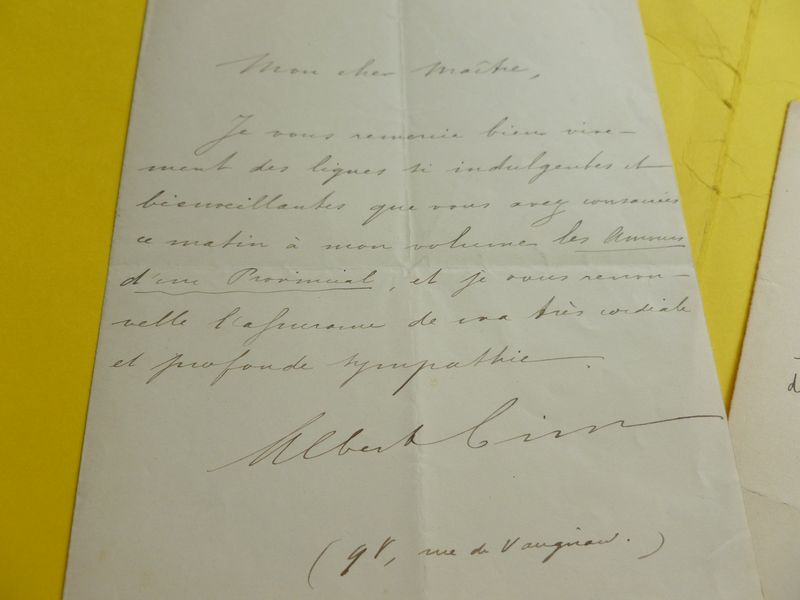 Mon cher Maître,
Je vous remercie bien vive-
ment des lignes si indulgentes et
bienveillantes que vous avez consacrées
ce matin à mon volume les Amours
d'un Provincial, et je vous renou-
velle l'assurance de ma très cordiale
et profonde sympathie.
Albert Cim
(98, rue de Vaugirard.)
d